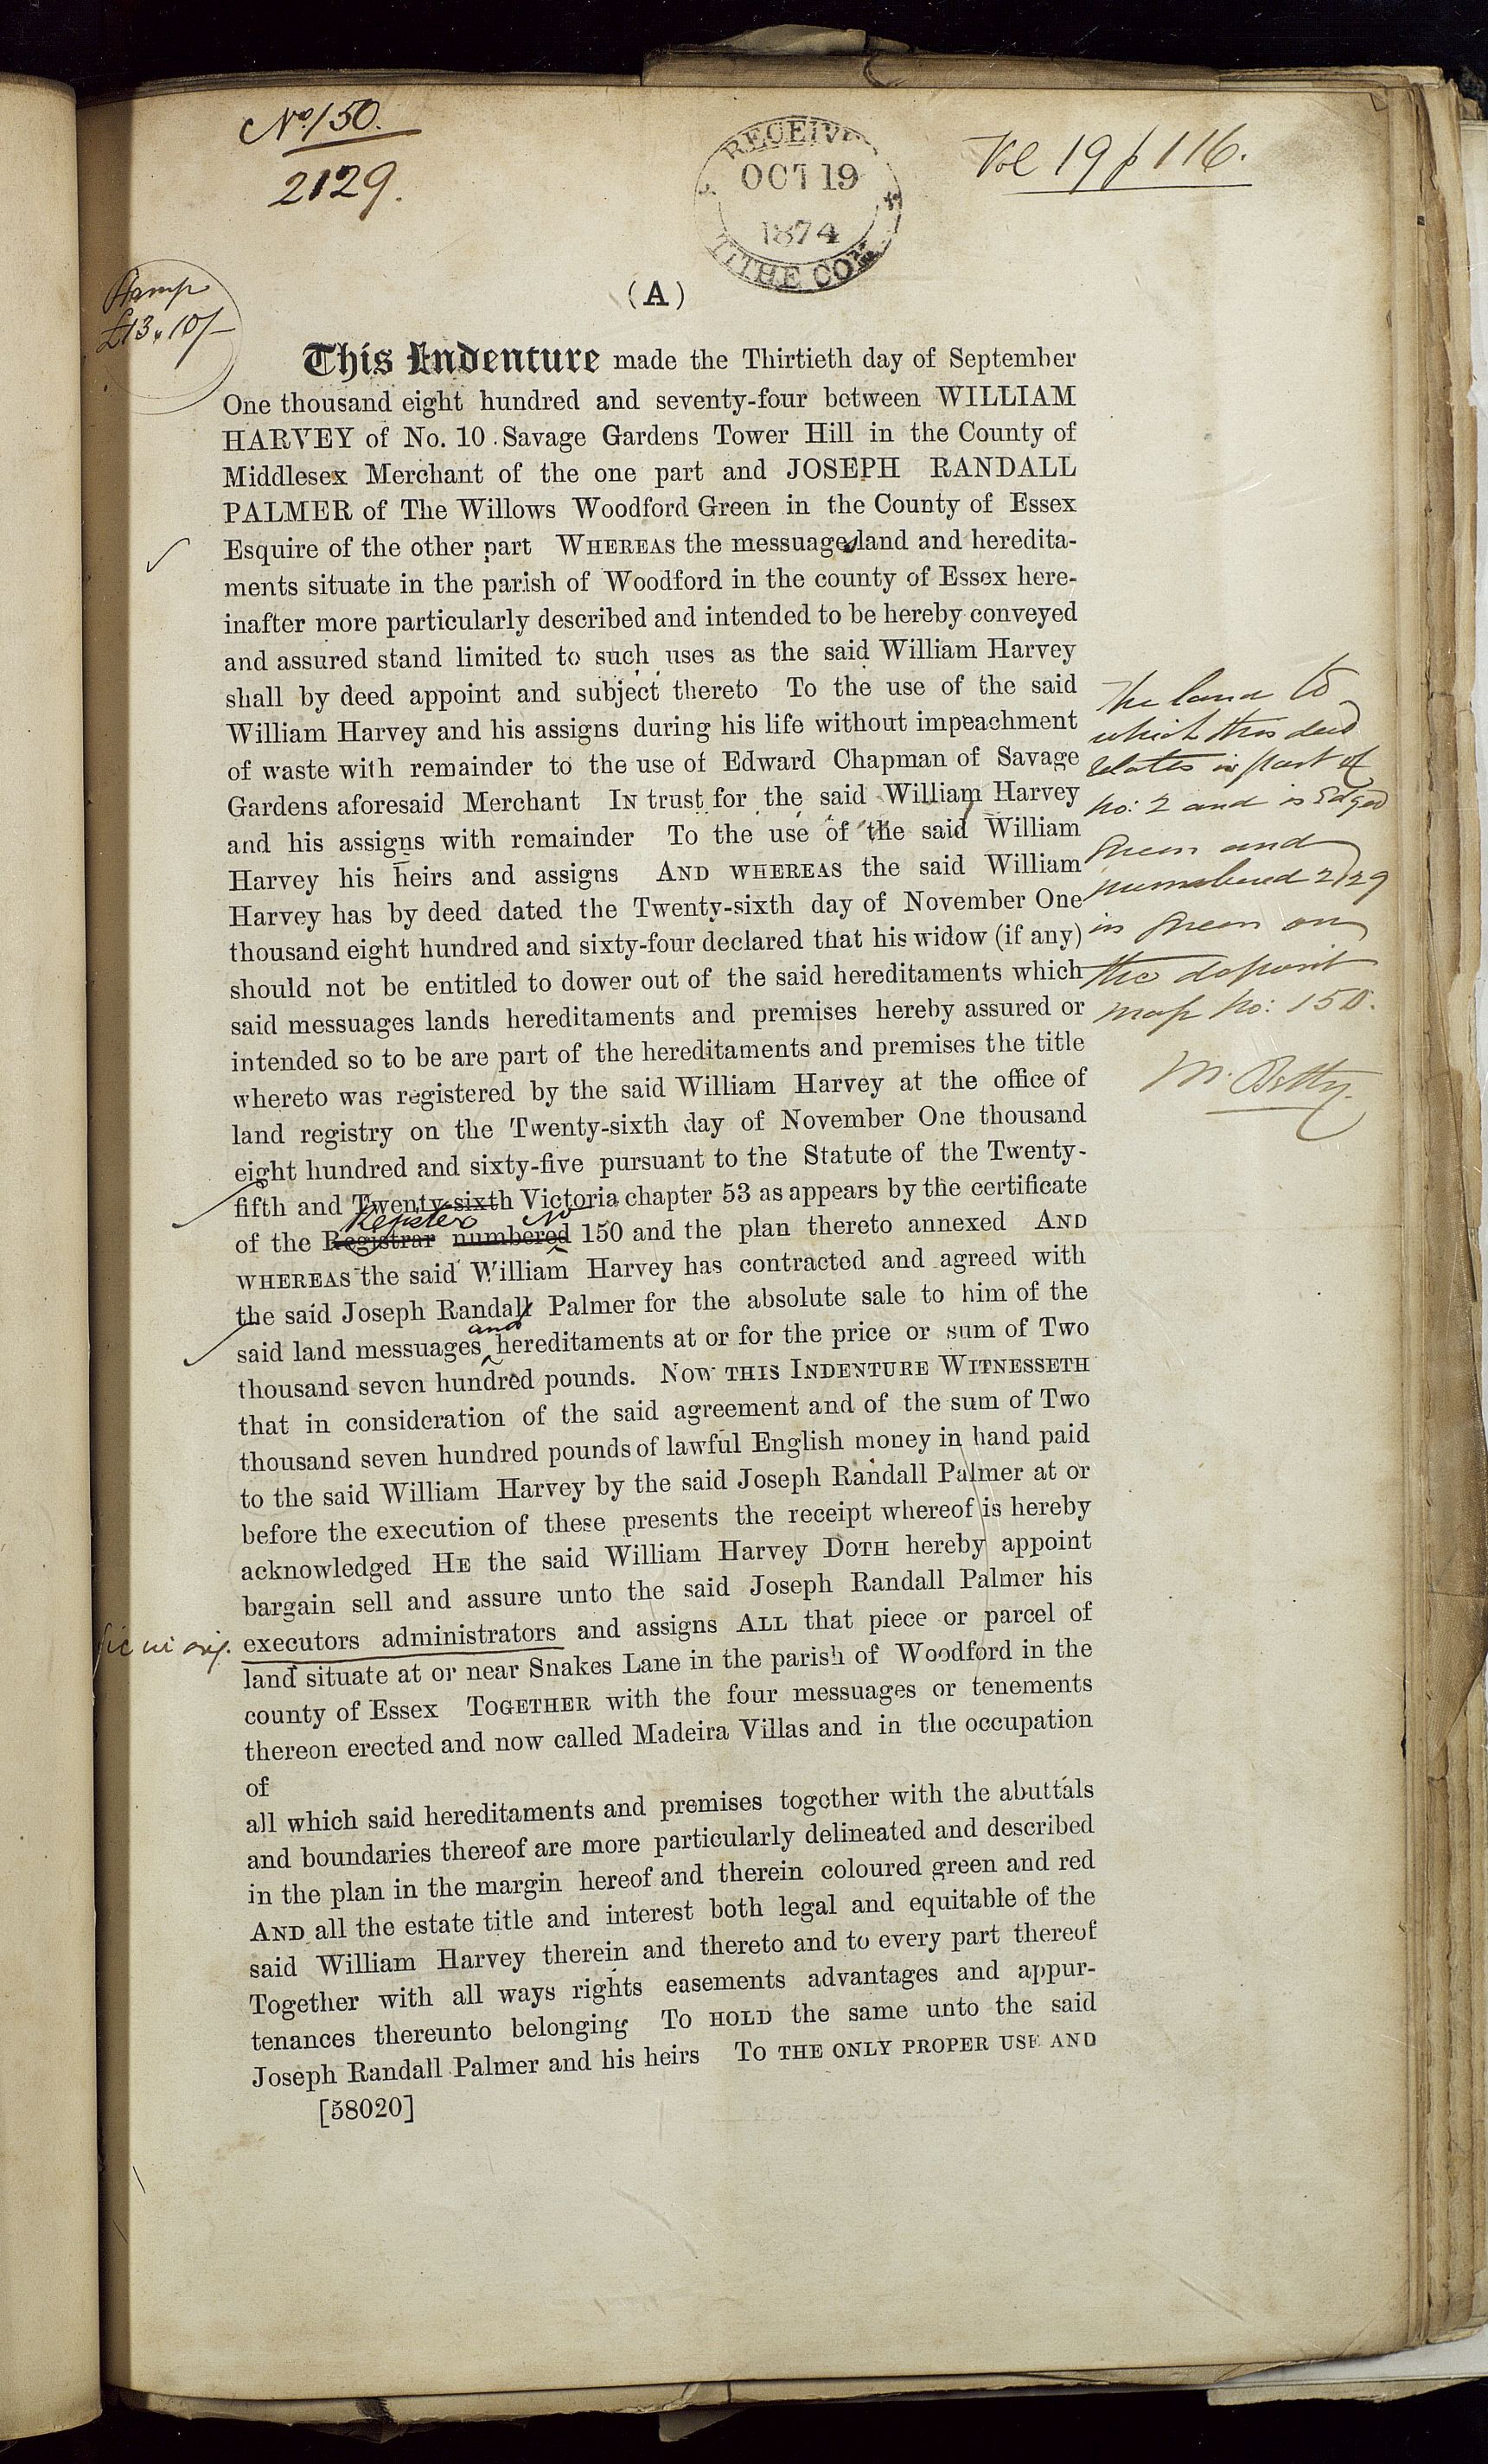 No. 150.
2129.
RECEIVE
OCT 19
1874
TITHE COM
Vol 19 p 116.
Stamp
£13.10/-
(A)
This Indenture made the Thirtieth day of September
One thousand eight hundred and seventy-four between WILLIAM
HARVEY of No. 10 Savage Gardens Tower Hill in the County of
Middlesex Merchant of the one part and JOSEPH RANDALL
PALMER of The Willows Woodford Green in the County of Essex
Esquire of the other part WHEREAS the messuages land and heredita-
ments situate in the parish of Woodford in the county of Essex here-
inafter more particularly described and intended to be hereby conveyed
and assured stand limited to such uses as the said William Harvey
shall by deed appoint and subject thereto To the use of the said
William Harvey and his assigns during his life without impeachment
of waste with remainder to the use of Edward Chapman of Savage
Gardens aforesaid Merchant IN trust for the said William Harvey
and his assigns with remainder To the use of the said William
Harvey his heirs and assigns AND WHEREAS the said William
Harvey has by deed dated the Twenty-sixth day of November One
thousand eight hundred and sixty-four declared that his widow (if any)
should not be entitled to dower out of the said hereditaments which
said messuages lands hereditaments and premises hereby assured or
intended so to be are part of the hereditaments and premises the title
whereto was registered by the said William Harvey at the office of
land registry on the Twenty-sixth day of November One thousand
eight hundred and sixty-five pursuant to the Statute of the Twenty-
fifth and Twenty-sixth Victoria chapter 53 as appears by the certificate
Register No
of the Registrar numbered 150 and the plan thereto annexed AND
WHEREAS the said William Harvey has contracted and agreed with
the said Joseph Randall Palmer for the absolute sale to him of the
and
said land messuages hereditaments at or for the price or sum of Two
thousand seven hundred pounds. NOW THIS INDENTURE WITNESSETH
that in consideration of the said agreement and of the sum of Two
thousand seven hundred pounds of lawful English money in hand paid
to the said William Harvey by the said Joseph Randall Palmer at or
before the execution of these presents the receipt whereof is hereby
acknowledged HE the said William Harvey DOTH hereby appoint
bargain sell and assure unto the said Joseph Randall Palmer his
executors administrators and assigns ALL that piece or parcel of
land situate at or near Snakes Lane in the parish of Woodford in the
county of Essex TOGETHER with the four messuages or tenements
thereon erected and now called Madeira Villas and in the occupation
of
all which said hereditaments and premises together with the abuttals
and boundaries thereof are more particularly delineated and described
in the plan in the margin hereof and therein coloured green and red
AND all the estate title and interest both legal and equitable of the
said William Harvey therein and thereto and to every part thereof
Together with all ways rights easements advantages and appur-
tenances thereunto belonging To HOLD the same unto the said
Joseph Randall Palmer and his heirs To THE ONLY PROPER USE AND
[58020]
sic in orig.
The land to
which this deed
relates is part of
No: 2 and is Edged
Green and
numbered 2129
in Green on
the deposit
map No: 150.